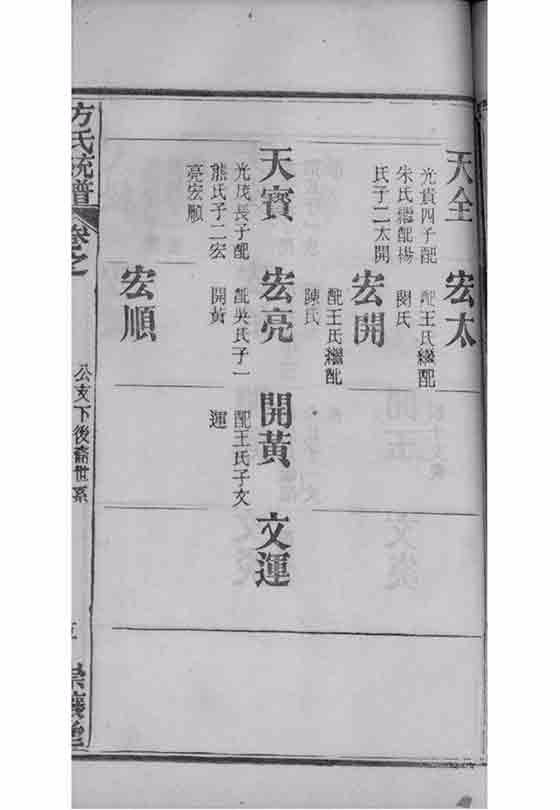 天全
光貴四子配
朱氏繼配楊
氏子二太開
宏太
配王氏繼配
閔氏
宏開
配王氏繼配
陳氏
天寶
光茂長子配
熊氏子二宏
亮宏順
宏亮
配吳氏子一
開黃
開黃
配王氏子文
運
文運
宏順
方氏統譜
卷之
公支下後裔世系